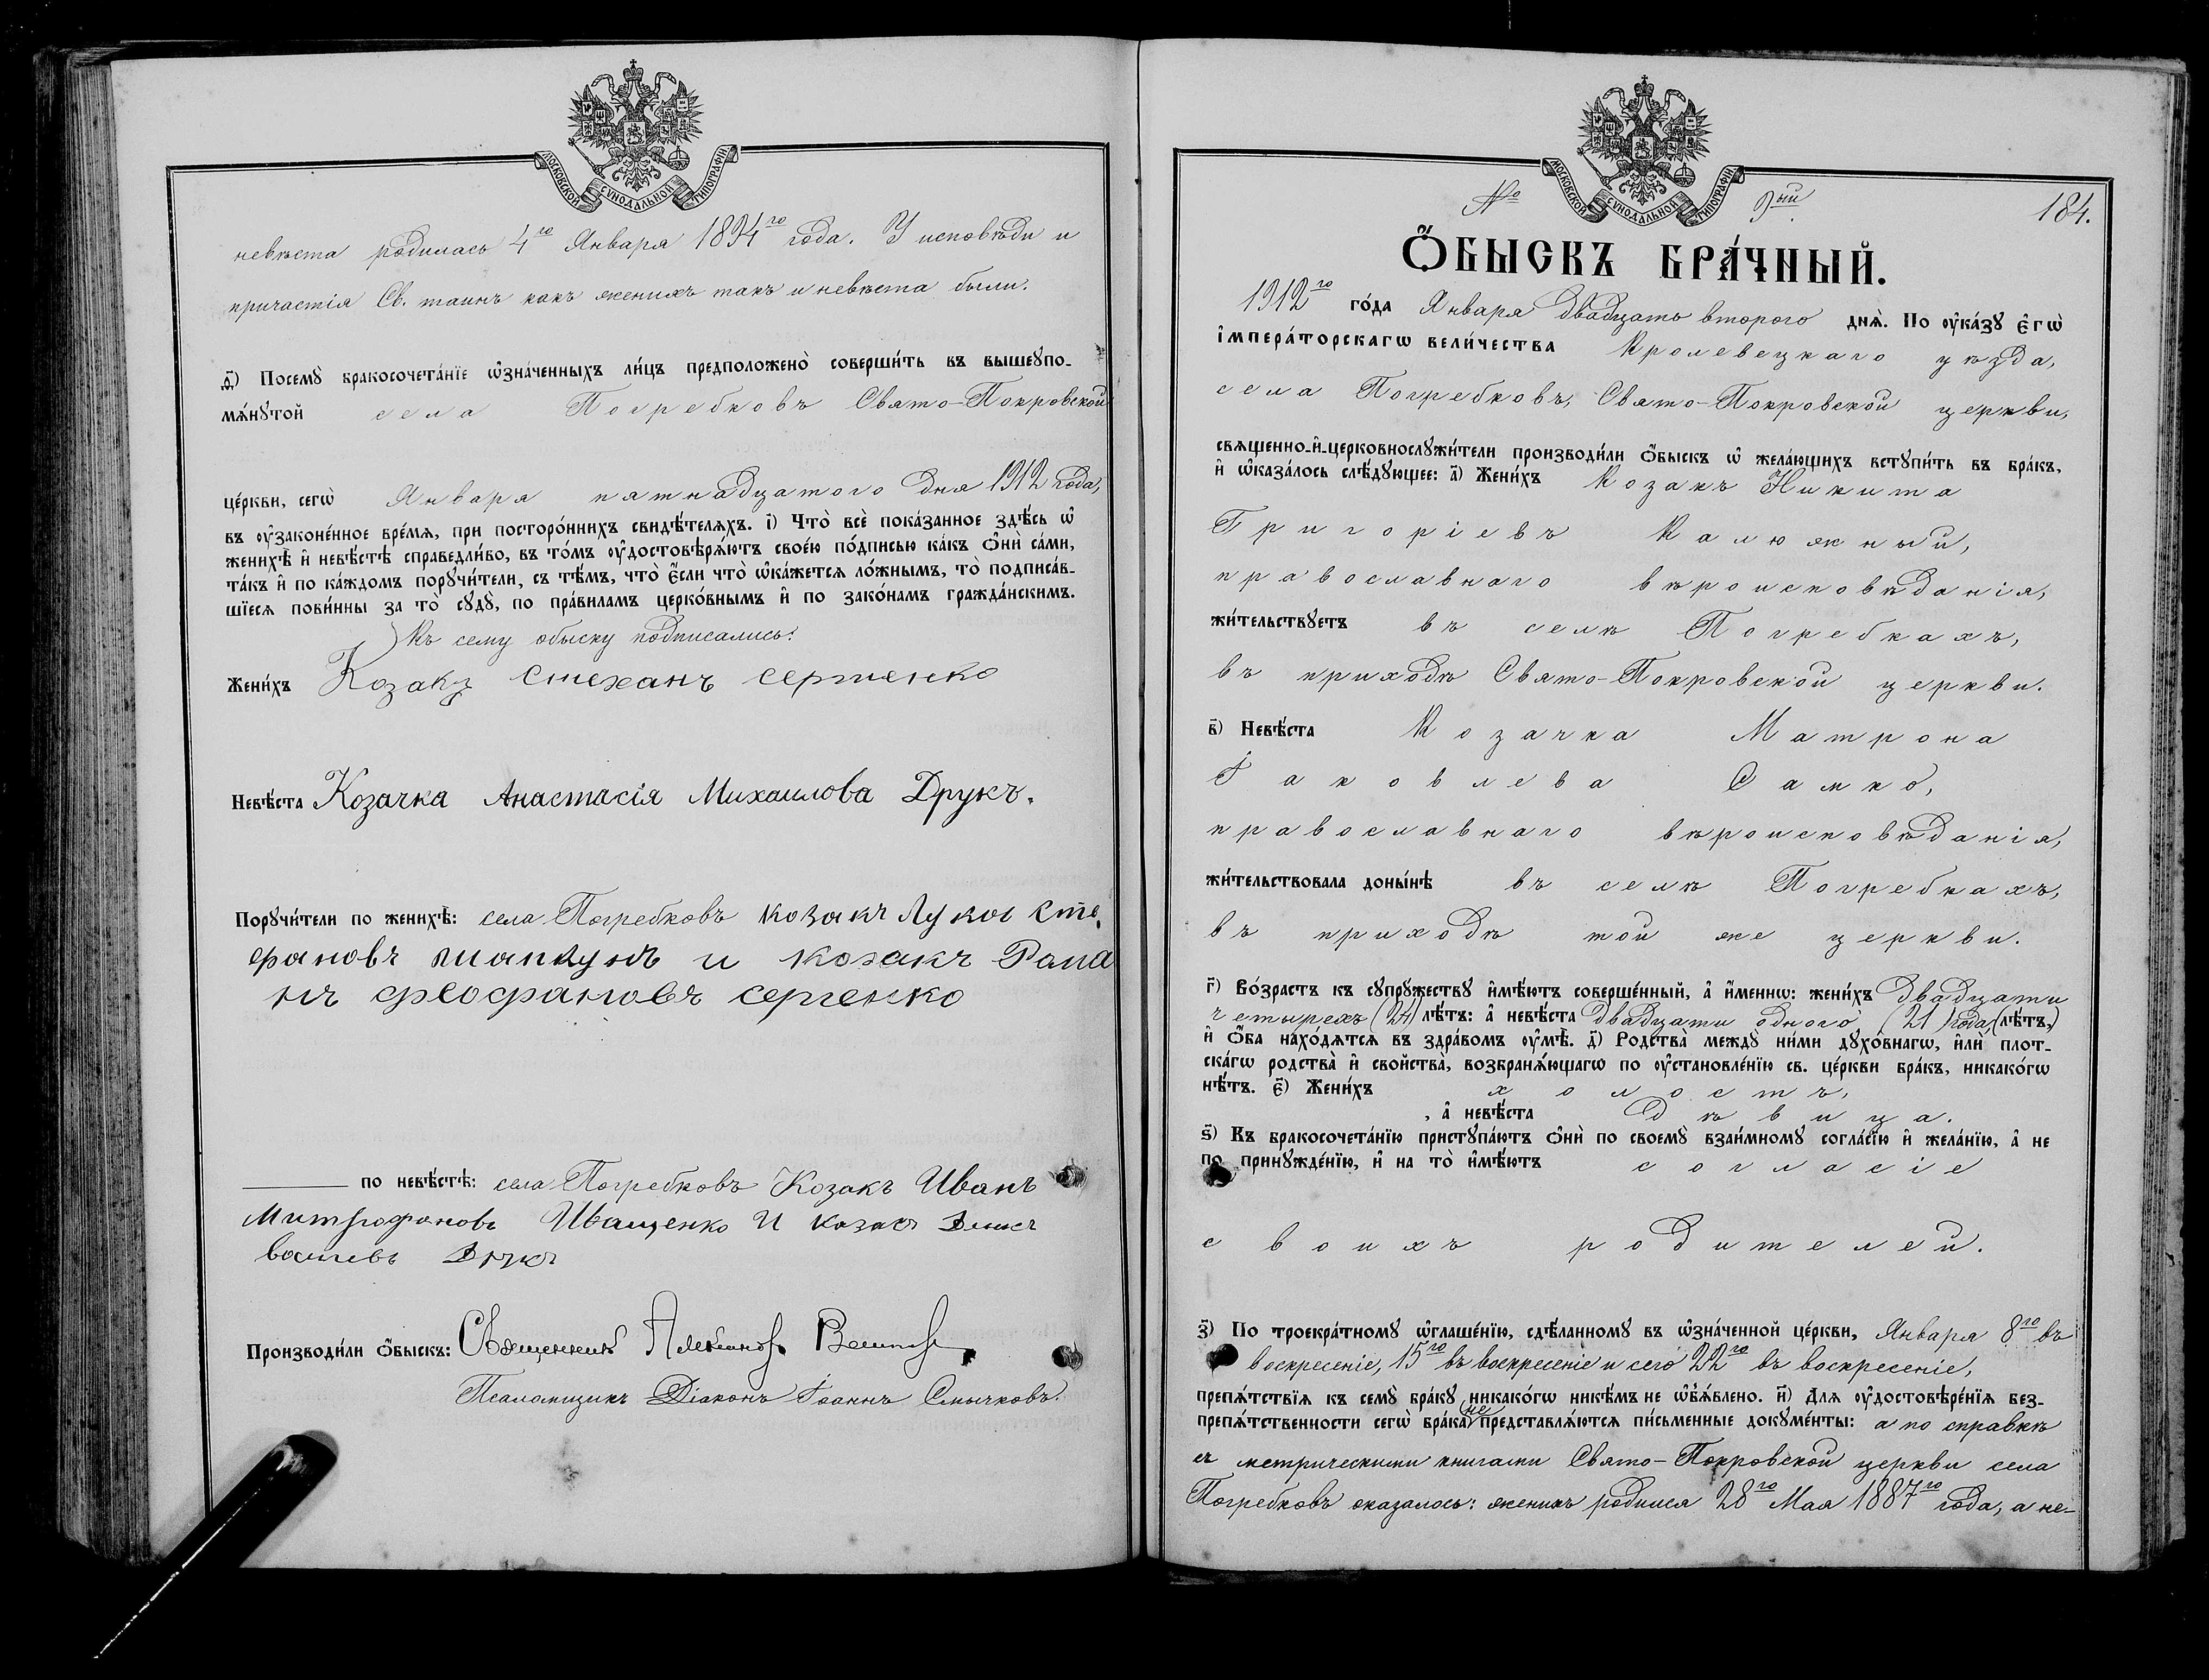 МОСКОВСКОЙ СѴНОДАЛЬНОЙ ТИПОГРАФІИ
невѣста родилась 4го Января 1894го года. У исповѣди и
причастія Св. таинъ какъ женихъ такъ и невѣста были.
д҃) Посемꙋ̀ бракосочета́нїе ѡ҆зна́ченныхъ ли́цъ предположено̀ соверши́ть въ вышеꙋпо-
мѧ́нꙋтой села Погребковъ Свято-Покровской
це́ркви, сегѡ̀ Января пятнадцатого дня 1912 года,
въ ᲂу҆законе́нное вре́мя, при посторо́ннихъ свидѣ́теляхъ. і҃) Что̀ всѐ пока́занное здѣ́сь ѡ҆
женихѣ̀ и҆ невѣ́стѣ справедли́во, въ то́мъ ᲂу҆достовѣрѧ́ютъ свое́ю по́дписью ка́къ ѻ҆нѝ са́ми,
та́къ и҆ по ка́ждомъ порꙋчи́тели, съ тѣ́мъ, что̀ є҆́сли что̀ ѡ҆ка́жется ло́жнымъ, то̀ подписа́в-
шїеся пови́нны за то̀ сꙋдꙋ̀, по пра́виламъ церко́внымъ и҆ по зако́намъ гражда́нскимъ.
Къ сему обыску подписались:
Жени́хъ Козакъ Стеханъ Сергиенко
Невѣ́ста Козачка Анастасія Михаилова Друкъ.
Порꙋчи́тели по женихѣ̀: села Погребковъ козакъ Лука Сте-
фановъ шапкунъ и козакъ Рома
нъ феофановъ сергенко
по невѣ́стѣ: села Погребковъ Козакъ Иванъ
Митрофановъ Иващенко И козакъ
Друкъ
Производи́ли ѻ҆́быскъ: Священникъ
Псаломщикъ Діаконъ Іоаннъ Смычковъ.
МОСКОВСКОЙ СѴНОДАЛЬНОЙ ТИПОГРАФІИ
№ 9ый 184.
Ѻ҆́БЫСКЪ БРА́ЧНЫЙ.
1912го го́да Января двадцать второго днѧ̀. По ᲂу҆ка́зꙋ є҆гѡ̀
і҆мпера́торскагѡ вели́чества Кролевецкаго уѣзда,
села Погребковъ, Свято-Покровской церкви,
священно-и҆-церковнослꙋжи́тели производи́ли ѻ҆́быскъ ѡ҆ жела́ющихъ встꙋпи́ть въ бра́къ,
и҆ ѡ҆каза́лось слѣ́дꙋющее: а҃) Жени́хъ Козакъ Никита
Григоріевъ Калюжный,
православнаго вѣроисповѣданія,
жи́тельствꙋетъ въ селѣ Погребкахъ,
въ приходѣ Свято-Покровской церкви.
в҃) Невѣ́ста Козачка Матрона
Іаковлева Самко,
православнаго вѣроисповѣданія,
жи́тельствовала доны́нѣ въ селѣ Погребкахъ,
въ приходѣ той же церкви.
г҃) Во́зрастъ къ сꙋпрꙋ́жествꙋ и҆мѣ́ютъ соверше́нный, а҆ и҆́меннѡ: жени́хъ двадцати
четырехъ (24) лѣ́тъ: а҆ невѣ́ста двадцати одного (21) года, (лѣ́тъ,)
и҆ ѻ҆́ба нахо́дятся въ здра́вомъ ᲂу҆мѣ̀. д҃) Родства̀ междꙋ̀ ни́ми дꙋхо́внагѡ, и҆лѝ пло́т-
скагѡ родства̀ и҆ свойства̀, возбранѧ́ющагѡ по ᲂу҆становле́нїю св. це́ркви бра́къ, никако́гѡ
нѣ́тъ. є҃) Жени́хъ холостъ,
, а҆ невѣ́ста дѣвица.
ѕ҃) Къ бракосочета́нїю пристꙋпа́ютъ ѻ҆нѝ по своемꙋ̀ взаи́мномꙋ согла́сїю и҆ жела́нїю, а҆ не
по принꙋжде́нїю, и҆ на то̀ и҆мѣ́ютъ согласіе
своихъ родителей.
з҃) По троекра́тномꙋ ѡ҆глаше́нїю, сдѣ́ланномꙋ въ ѡ҆зна́ченной це́ркви, Января 8го въ
воскресеніе, 15го въ воскресеніе и сего 22го въ воскресеніе,
препѧ́тствїя къ семꙋ̀ бра́кꙋ никако́гѡ никѣ́мъ не ѡ҆б̾ѧ́влено. и҃) Для ᲂу҆достовѣре́нїя без-
препѧ́тственности сегѡ̀ бра́ка не представлѧ́ются пи́сьменные докꙋме́нты: а по справкѣ
съ метрическими книгами Свято-Покровской церкви села
Погребковъ оказалось: женихъ родился 28го Мая 1887го года, а не-